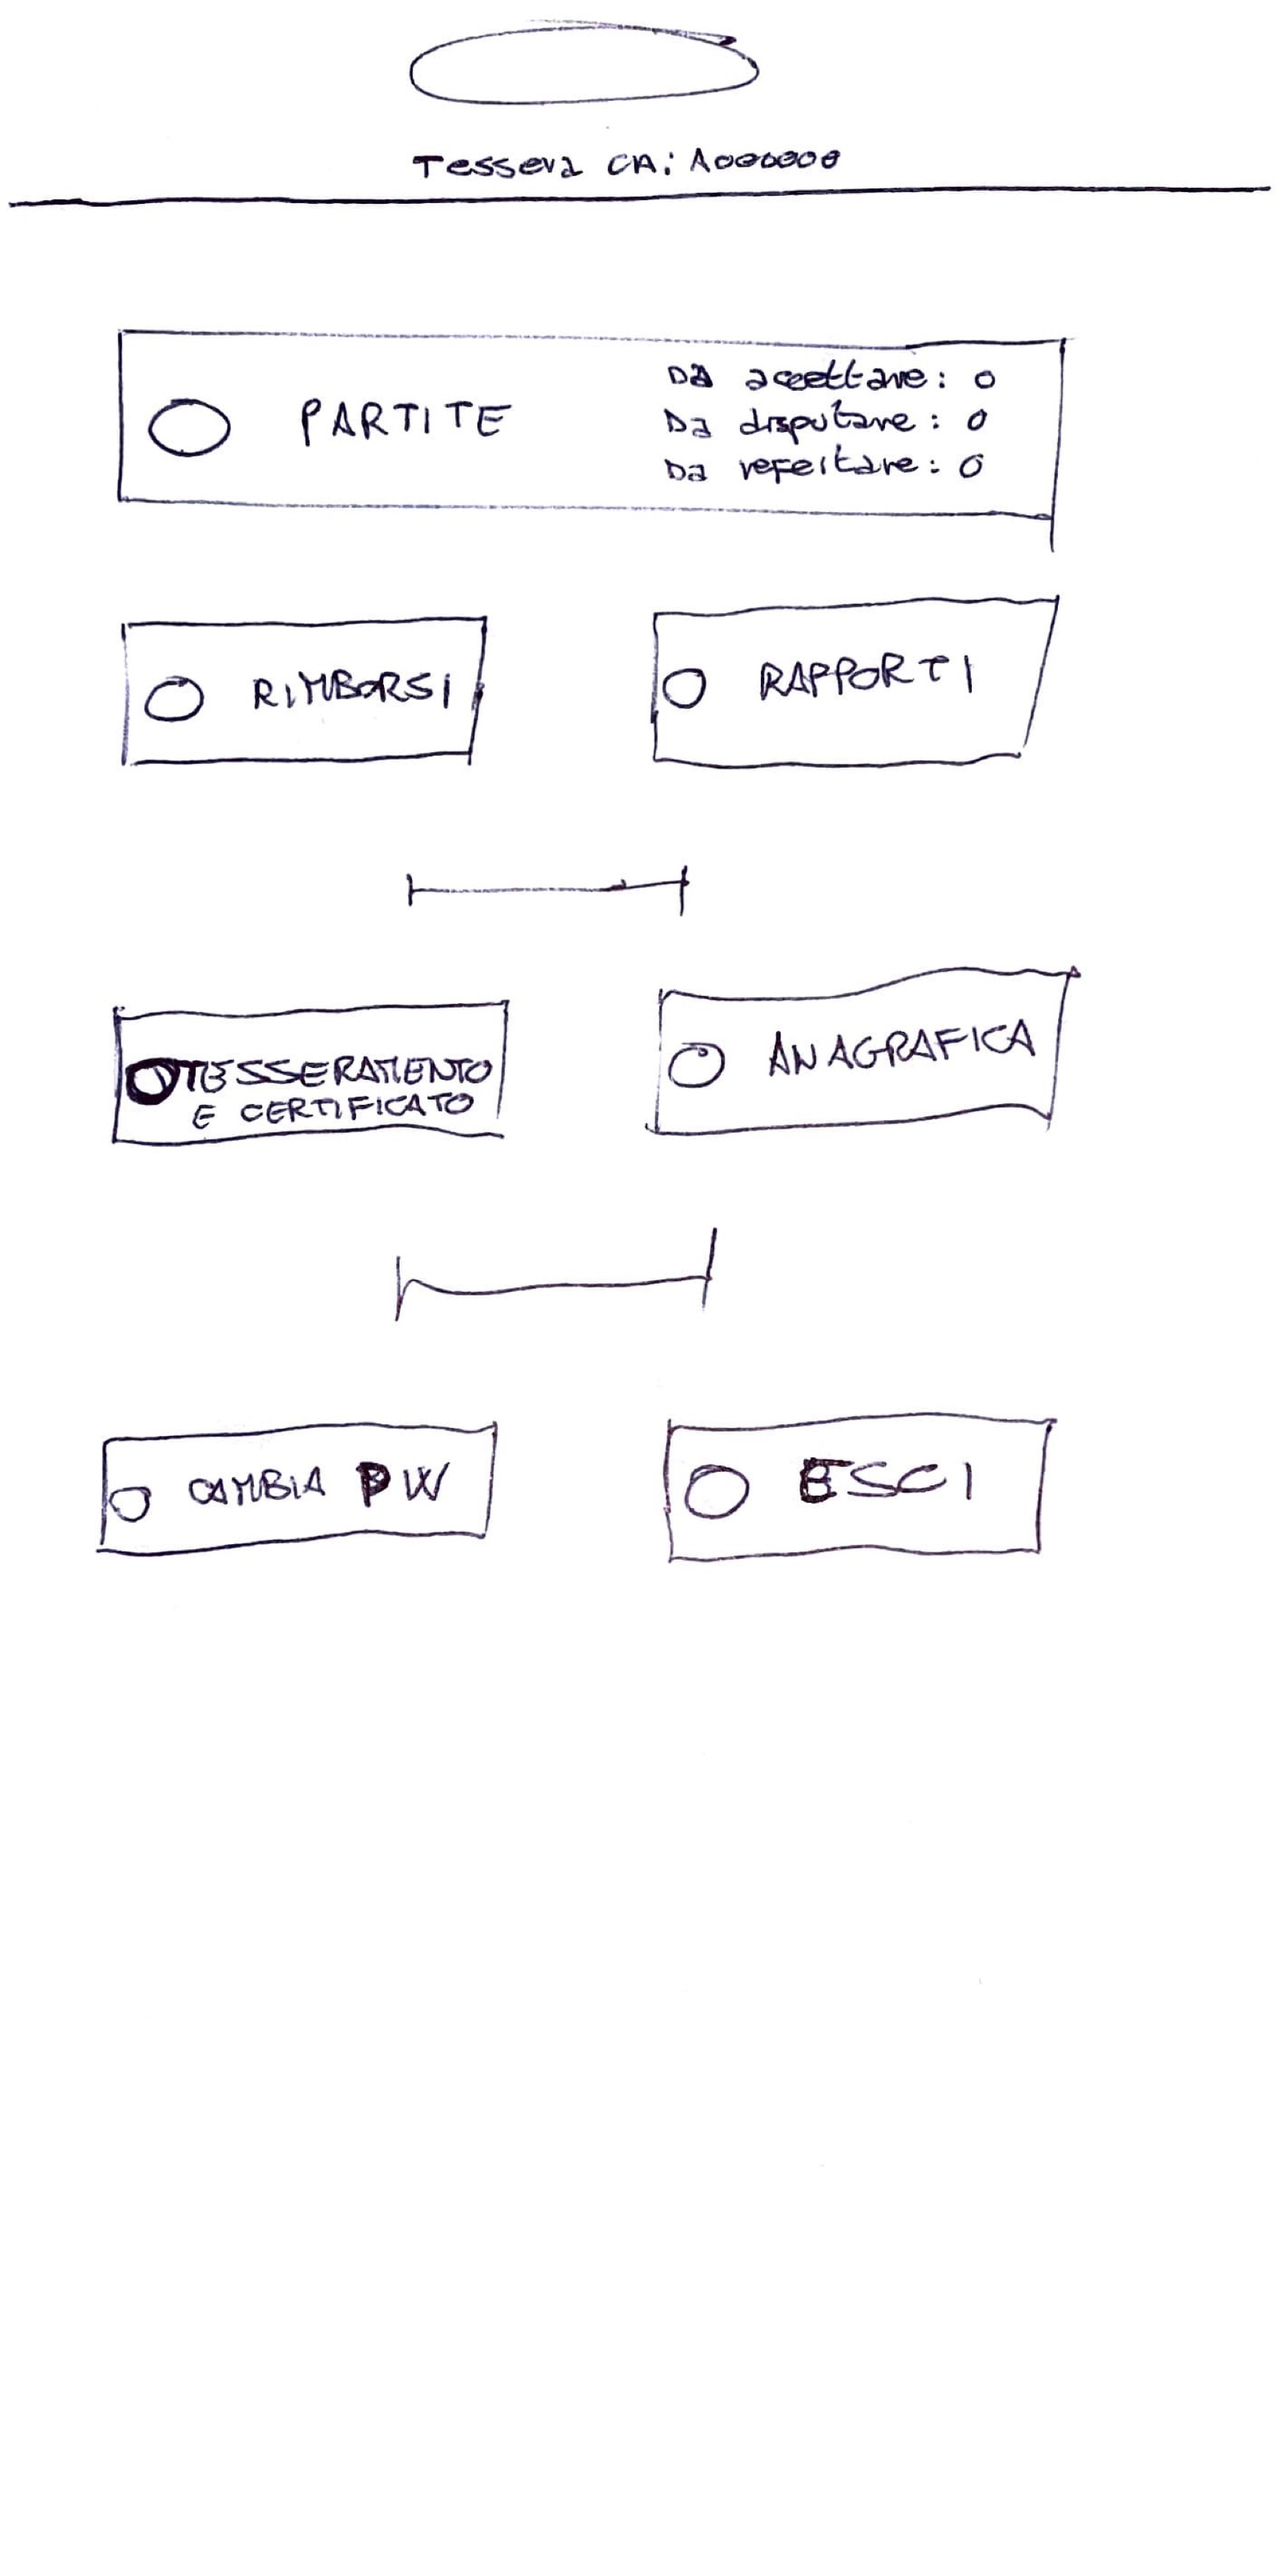 Tessera CA: A000000
PARTITE
Da accettare: 0
Da disputare: 0
Da refertare: 0
RIMBORSI
RAPPORTI
TESSERAMENTO
E CERTIFICATO
ANAGRAFICA
CAMBIA PW
ESCI